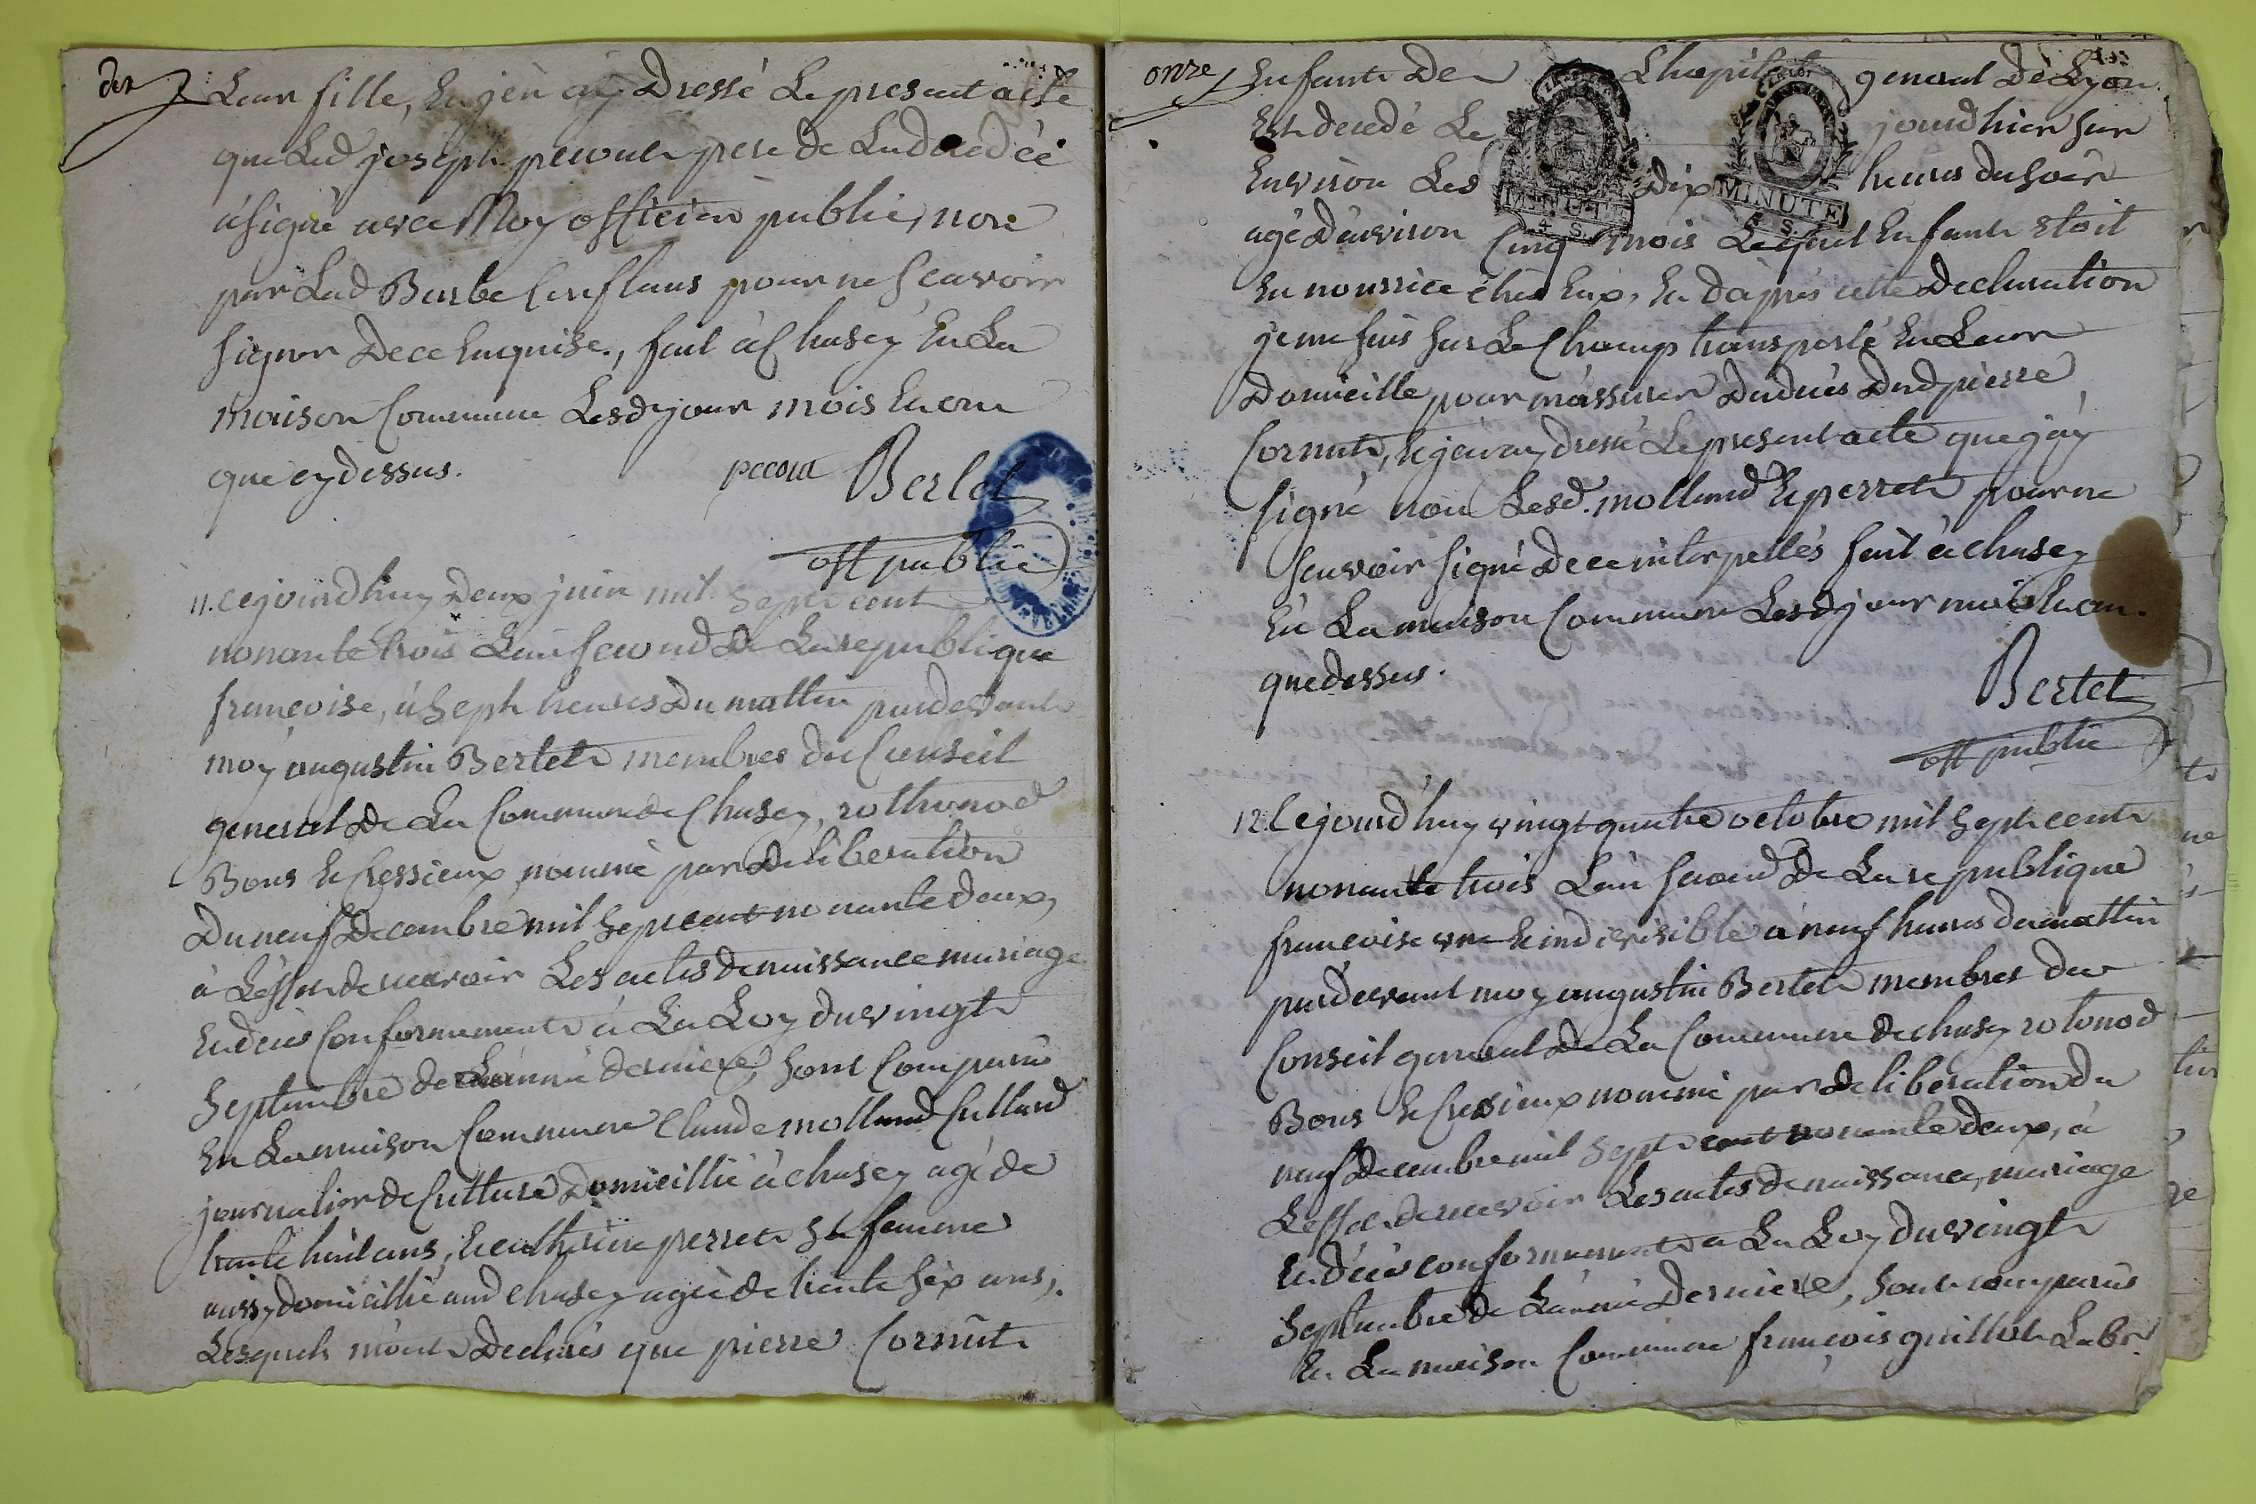 dix
Leur fille, Et j'en ay Dressé Le present acte
que Led joseph pecoult pere de Lad decedéé
à signé avec Moy officier public, non
par Lad Barbe Conflans pour ne scavoir
signer De ce Enquise, fait à Chasey En La
maison Commune Lesd jour mois Et an
que cy dessus.
pecout Bertet
off public
11. Cejourdhuy Deux juin mil sept cent
nonante trois L'an second De La republique
françoise, à sept heures Du mattin pardevant
moy augustin Bertet membres du Conseil
general De La Commune de Chasey, rothonod
Bons Et Cressieux nommé par Deliberation
Du neuf Decembre mil sept cent nonante deux,
à L'effet de recevoir Les actes de naissance mariage
Et décès Conformement à La Loy du vingt
Septembre de L'année derniere, sont Comparus
En La maison Commune Claude molland Cullard
journalier de Culture Domicillié à chasey agé de
trente huit ans, Et catherine perret sa femme
aussy domicillié aud chasey agéé de trente six ans,
Lesquels m'ont Declarés que pierre Cornût
onze
Enfant De L'hopital general De Lyon
Est decedé Le jourd'hier sur
Environ Les dix heures du soir
agé D'environ Cinq mois Lequel Enfant Etoit
En nourrice chés Eux, Et D'après cette Declaration
je me suis sur Le Champ transporté En Leur
Domicille pour m'assurer Du décès Dud pierre
Cornut, Et j'en ay dressé Le present acte que j'ay
signé non Lesd. molland Et perret pour ne
scavoir signé De ce interpellés fait à chasey
En La maison Commune Lesd jour mois Et an
que dessus.
Bertet
off public
MINUTE
4 S.
MINUTE
S.
12. Cejourd'huy vingt quatre octobre mil sept cent
nonante trois L'an second De La republique
françoise une Et indivisible à neuf heures du mattin
pardevant moy augustin Bertet membres du
Conseil general De La Commune de chasey rotonod
Bons Et Cressieux nommé par Deliberation du
neuf Decembre mil sept cent nonante deux, à
L'effet de recevoir Les actes de naissance, mariage
Et décès conformement à La Loy du vingt
Septembre de L'année Derniere, sont comparus
En La maison Commune françois guillot Lab.r